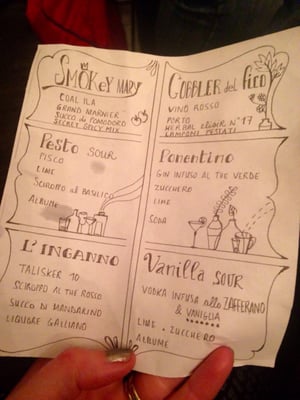 SMOKEY MARY
CAOL ILA
GRAND MARNIER
SUCCO DI POMODORO
SECRET SPICY MIX
COBBLER del FICO
VINO ROSSO
PORTO
HERBAL ELISIR N°17
LAMPONI PESTATI
Pesto SOUR
PISCO
LIME
SCIROPPO al BASILICO
ALBUME
Ponentino
GIN INFUSO AL THE VERDE
ZUCCHERO
LIME
SODA
L'INGANNO
TALISKER 10
SCIROPPO AL THE ROSSO
SUCCO DI MANDARINO
LIQUORE GALLIANO
Vanilla SOUR
VODKA INFUSA allo ZAFFERANO
& VANIGLIA
LIME • ZUCCHERO
ALBUME